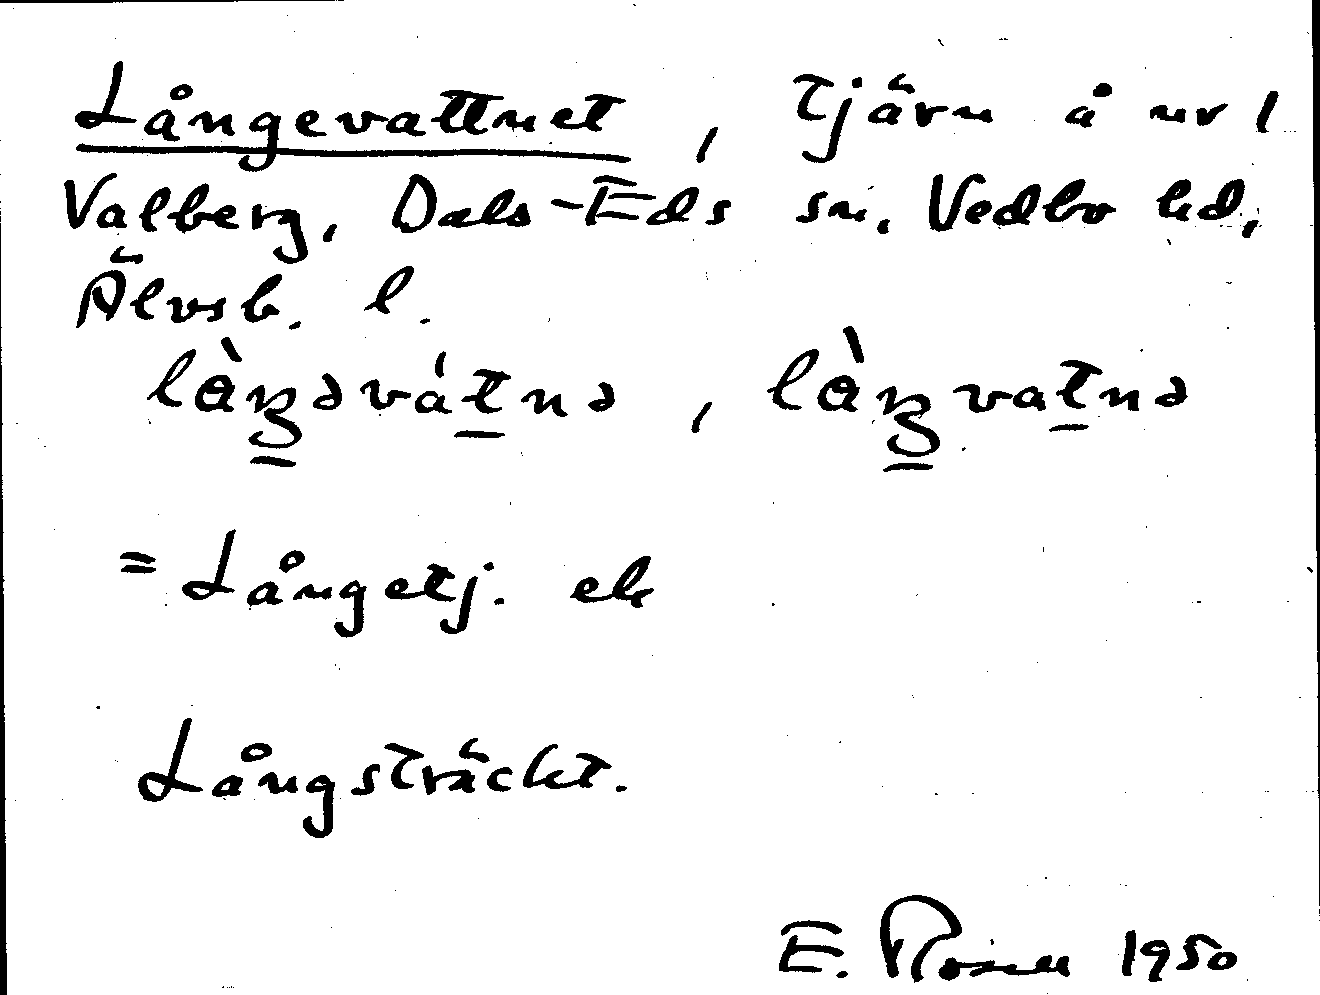 Långevattnet, Tjärn å nr 1
Valberg, Dals-Eds sn. Vedbo hd,
Älvsb. l.
lɵ̀ŋəvát̲nə, lɵ̀ŋvat̲nə
= Långetj. ek
Långsträckt.
E. Rosell 1950